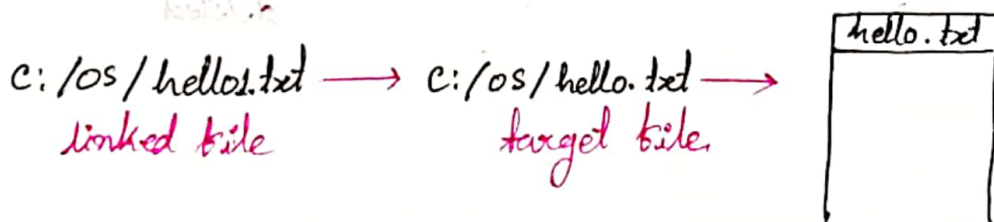 c:/os/hello1.txt → c:/os/hello.txt → hello.txt
linked file target file